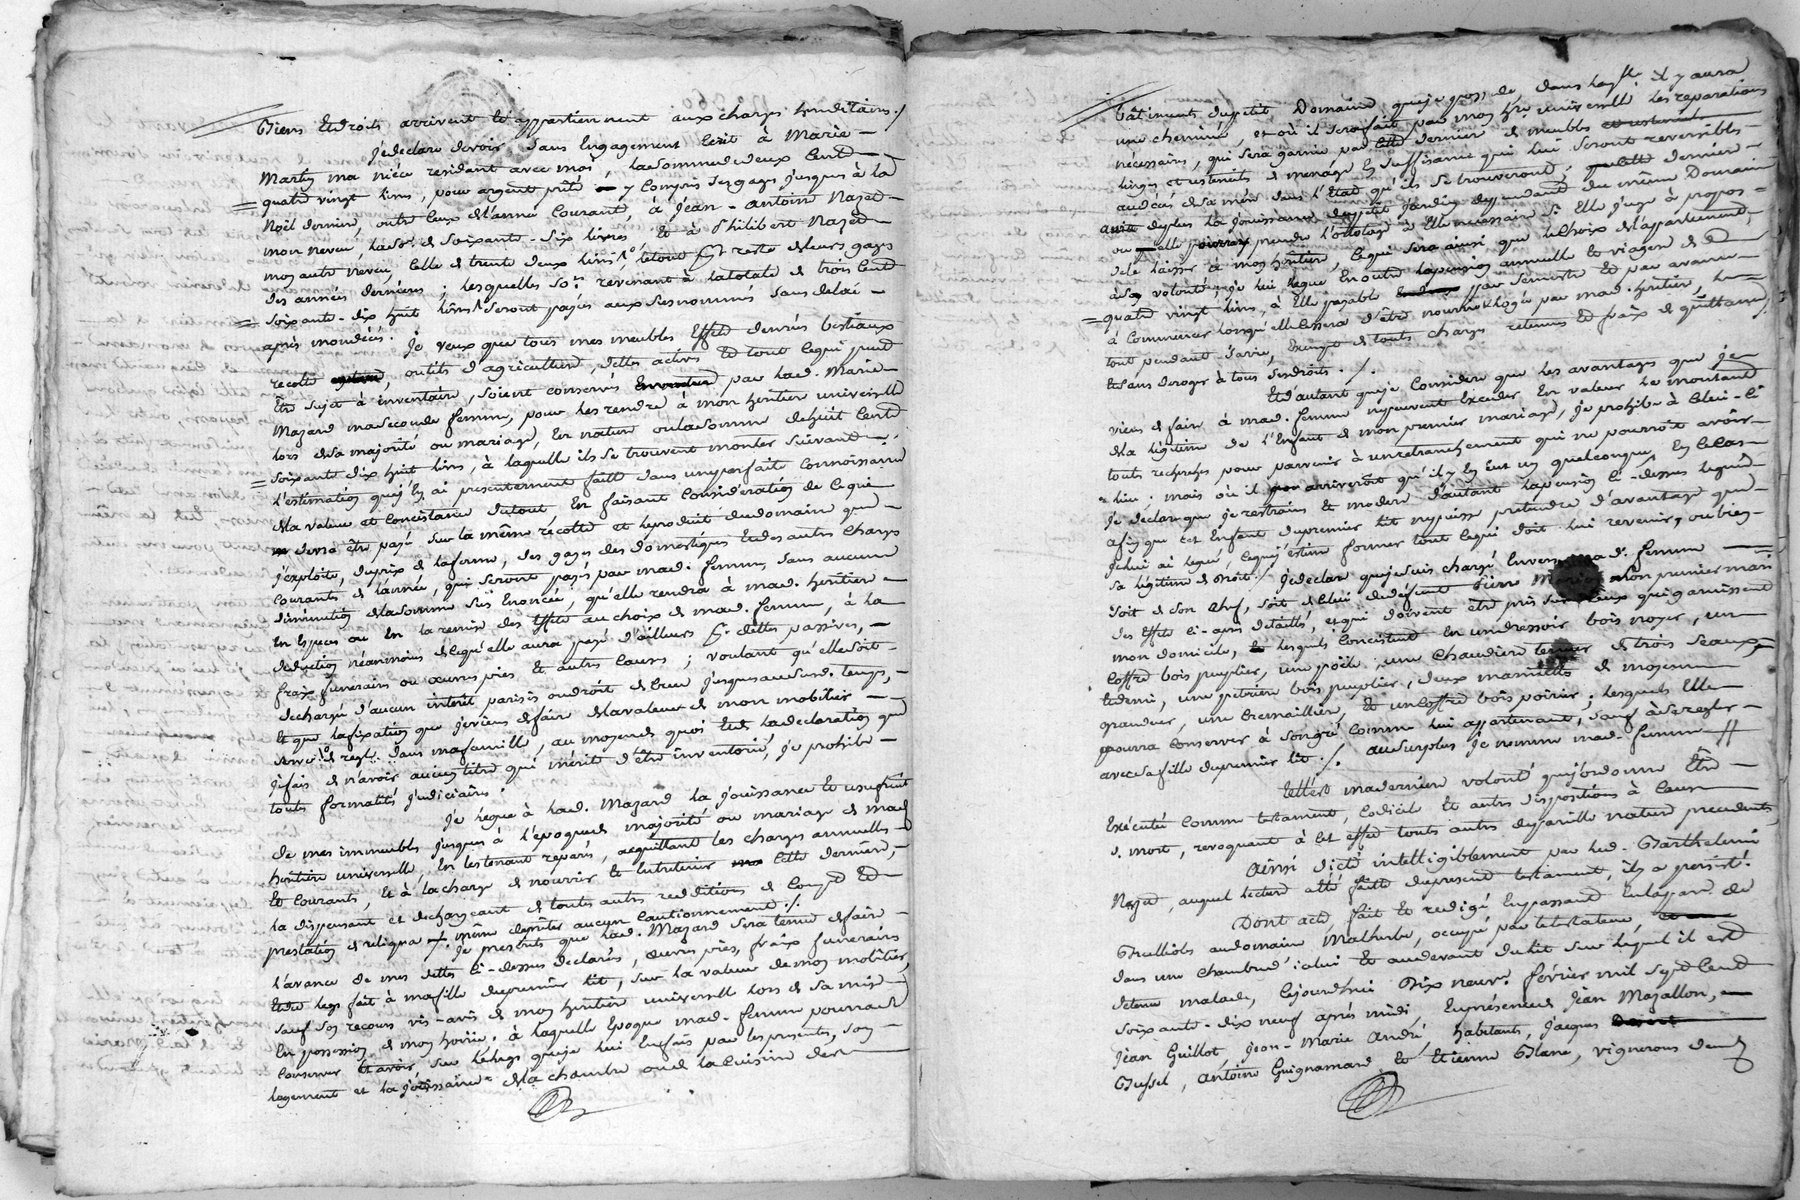 Biens et droits arrivent et appartiennent aux charges héréditaires ./
Je declare devoir sans engagement Ecrit à Marie
Martin ma niéce residant avec moi, la somme de deux Cent
quatre vingt livres, pour argent prêté y Compris ses gages jusques à la
Noël derniere, outre Ceux de l'année Courante, à Jean-Antoine Nazat
mon neveu, la so.e de soixante-six livres et à Philibert Nazat
mon autre neveu, Celle de trente deux livres, le tout pr reste de leurs gages
des années dernieres ; lesquelles so.es revenant à la totale de trois Cent
soixante-dix huit livres seront payés aux susnommés sans delai
après mon décès. Je veux que tous mes meubles Effets denrées bestiaux
recolte, outils d'agriculture, dettes actives et tout ce qui peut
Être sujet à inventaire, soient conservés par lad. Marie
Mazard ma seconde femme, pour les rendre à mon héritier universelle
lors de sa majorité ou mariage, En nature ou la somme de huit Cent
soixante dix huit livres, à laquelle ils se trouvent monter suivant
l'estimation que j'En ai presentement faitte dans une parfaite Connoissance
de la valeur et Concistance du tout En faisant Considération de Ce qui
devra être payé sur la même récolte et le produit du domaine que
j'exploite, du prix de la ferme, des gages des domestiques et des autres charges
Courantes de l'année, qui seront payés par mad. femme, sans aucune
diminution de la somme sus Enoncée, qu'elle rendra à mad. héritiere
En Especes ou En la remise des Effets au choix de mad. femme, à la
deduction néanmoins de Ce qu'elle aura payé d'ailleurs pr dettes passives,
fraix funeraires ou œuvres pies et autres Causes ; voulant qu'elle soit
dechargée d'aucun intérêt parisis ou droit de Crue jusques aud. temps,
Et que la fixation que je viens de faire de la valeur de mon mobilier
serve de regle dans ma famille, au moyen de quoi Et de la declaration que
je fais de n'avoir aucun titre qui mérite d'être inventorié, je prohibe
toutes formalités judiciaires.
Je légue à lad. Mazard la jouissance et usufruit
de mes immeubles jusques à l'époque de majorité ou mariage de mad.
héritiere universelle, En les tenant reparés, acquittant les charges annuelles
et Courantes, et à la charge de nourrir et Entretenir Cette derniere,
la dispensant et dechargeant de toutes autres redditions de Compte et
prestation de reliqua même de prêter aucun Cautionnement ./.
Je prescrits que lad. Mazard sera tenue de faire
l'avance de mes dettes Ci-dessus declarées, œuvres pies, fraix funeraires
Et du legs fait à ma fille du premier lit, sur la valeur de mon mobilier,
sauf son recours vis-avis de mon héritiere universelle lors de sa mise
En possession de mon hoirie, à laquelle Epoque mad. femme pourra
Conserver et avoir, sur le legs que je lui En fais par les presentes, son
logement et la jouissance de la chambre ou de la Cuisine des
bâtiments du petit Domaine que je possede dans la ... il y aura
une cheminée, et où il sera fait par mon hre universelle les reparations
necessaires, qui sera garnie par Cette derniere de meubles
linges et ustensiles de ménage En suffisance qui lui seront reversibles
au décès de sa mére dans l'Etat qu'ils se trouveront, derniere
de plus la jouissance du petit jardin dependant du même Domaine
où elle pourra prendre l'ortolage à Elle necessaire si Elle juge à propos
de le laisser à mon héritiere, Ce qui sera ainsi que le choix de l'appartement,
à sa volonté ; je lui legue En outre la pension annuelle et viagere de
quatre vingt livres, à Elle payable par semestre et par avance
à Commencer lorsqu'elle Cessera d'être nourrie et logée par mad. héritiere,
tout pendant sa vie, Exempte de toutes charges retenues et fraix de quittances,
Et sans deroger à tous ses droits ./.
Et d'autant que je Considere que les avantages que je
viens de faire à mad. femme ne peuvent Exceder En valeur le montant
de la légitime de l'Enfant de mon premier mariage, je prohibe à Celui-Ci
toutes recherches pour parvenir à un retranchement qui ne pourroit avoir
lieu. mais où il arriveroit qu'il y En Eut un quelconque, En Ce Cas
Je declare que je restrains et modere d'autant la pension Ci-dessus leguée
afin que Cet Enfant du premier lit ne puisse pretendre d'avantage que
Je lui ai legué, Ce que j'estime former tout Ce qui doit lui revenir, ou bien
sa légitime de droit. / Je declare que je suis chargé Envers mad. femme
soit de son chef, soit de Celui de deffunt Pierre son premier mari
des Effets Ci-après detaillés, et qui doivent être pris sur Ceux qui garnissent
mon domicile, lesquels Concistent En un dressoir bois noyer, un
Coffre bois peuplier, une poële, une Chaudiere de trois seaux
Et demi, une pétriere bois peuplier, deux marmittes de moyenne
grandeur, une Cremaillere, et un Coffre bois poirier ; lesquels Elle
pourra Conserver à son gré Comme lui appartenant, sauf à se regler
avec sa fille du premier lit ./. au surplus je nomme mad. femme
Telle est ma derniere volonté que j'ordonne Être
Exécutée Comme testament, Codicile et autres dispositions à Cause
d. mort, revoquant à Cet effet toutes autres de pareille nature precedentes,
Ainsi dicté intelligiblement par led. Barthelemi
Nazat, auquel lecture a été faitte du present testament, il y a persisté.
Dont acte, fait et redigé En passant En la parr. de
Bealliots au domaine Malherbe, occupé par le testateur,
dans une chambre d'icelui et au devant du lit sur lequel il est
detenu malade, Cejourd'hui Dix neuf. février mil sept Cent
soixante-dix neuf après midi, En présence de Jean Mazallon,
Jean Guillot, Jean-Marie André, habitants, Jacques
Bussel, Antoine Guignamard et Etienne Blane, vignerons de